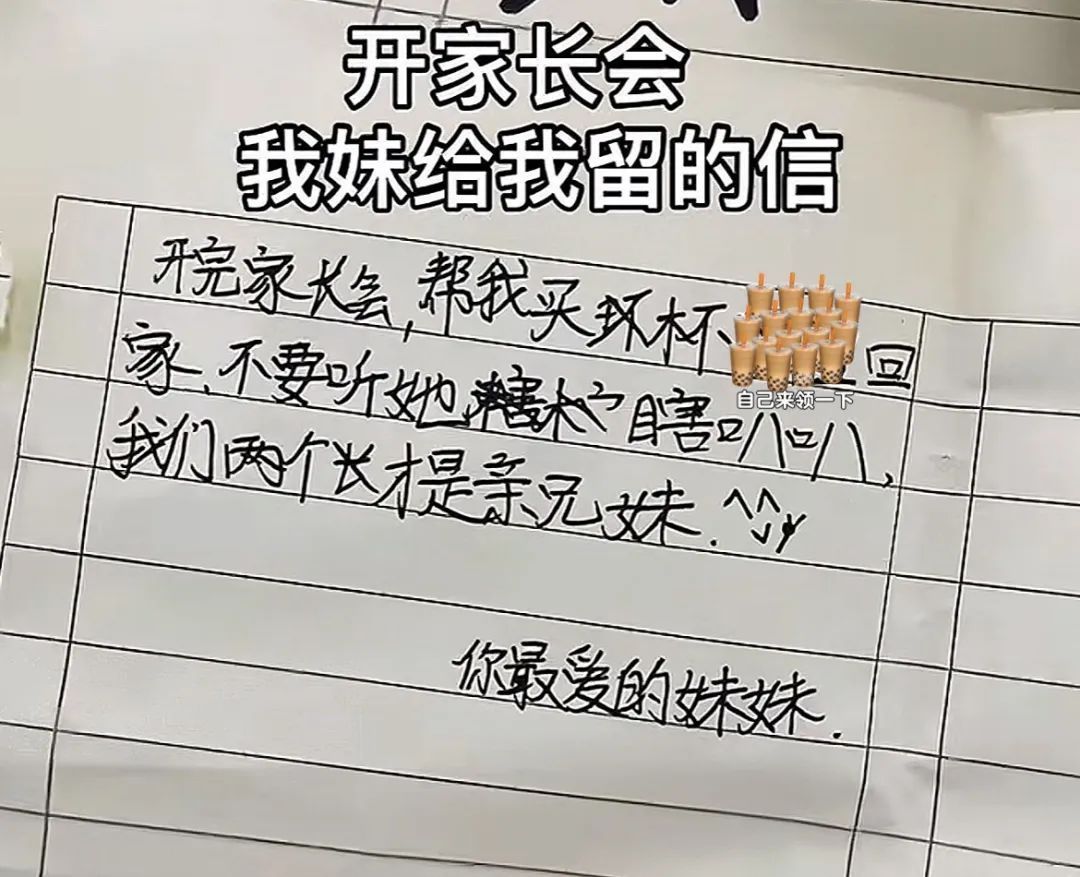 开家长会
我妹给我留的信
开完家长会,帮我买环杯
回
自己来领一下
家、不要听她 瞎叭叭,
我们两个长才是亲兄妹.
你最爱的妹妹.